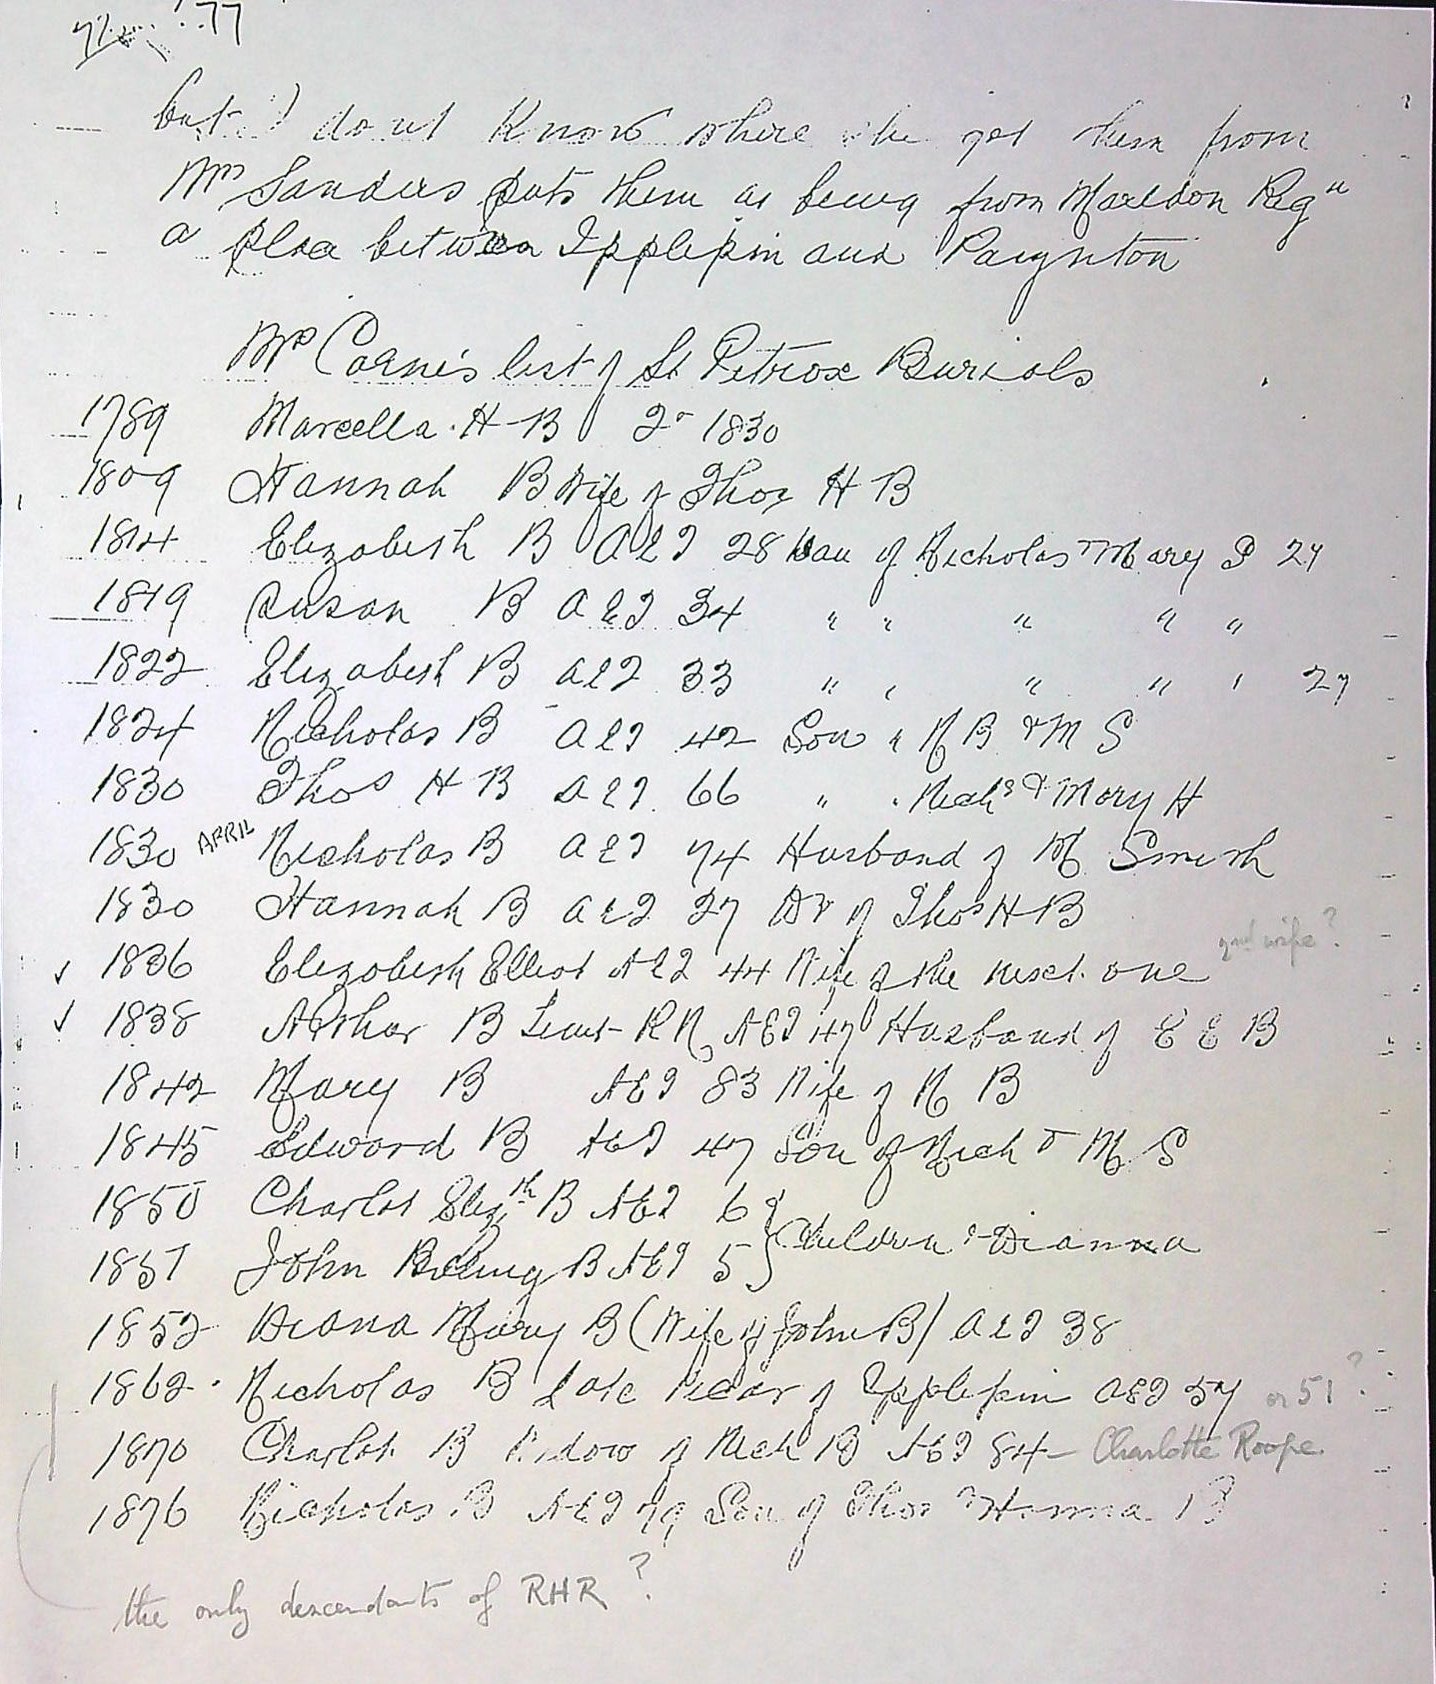 77
but I dont Know where she got them from
Mrs Sanders puts them as being from Marldon Regn
a plac between Ipplepin and Paignton
Mr Corne's list of St Petrox Burials
1789 Marcella H B 2- 1830
1809 Hannah B Wife of Thos H B
1814 Elizabeth B AET 28 Dau of Nicholas & Mary S 27
1819 Susan B AET 34 " " " " "
1822 Elizabeth B AET 33 " " " " " 27
1824 Nicholas B AET 42 Son " N B & M S
1830 Thos H B AET 66 " " Nichs & Mary H
1830 APRIL Nicholas B AET 74 Husband of M Smith
1830 Hannah B AET 27 Dr of Thos H B
2nd wife?
✓ 1836 Elizabeth Elliot AET 44 Wife of the next one
✓ 1838 Arthur B Lieut R N AET 47 Husband of E E B
1842 Mary B AET 83 Wife of N B
1845 Edward B AET 47 Son of Nich & M S
1850 Charlot Elizth B AET 6
} Children Dianna
1851 John B AET 5
1852 Diana Mary B (Wife of John B) AET 38
1862 Nicholas B Late Vicar of Ipplepin AET 57 or 51?
1870 Charlot B Widow of Nich B AET 84 - Charlotte Roope
1876 Nicholas B AET 79 Son of Thos & Hanna B
the only descendants of RHR?